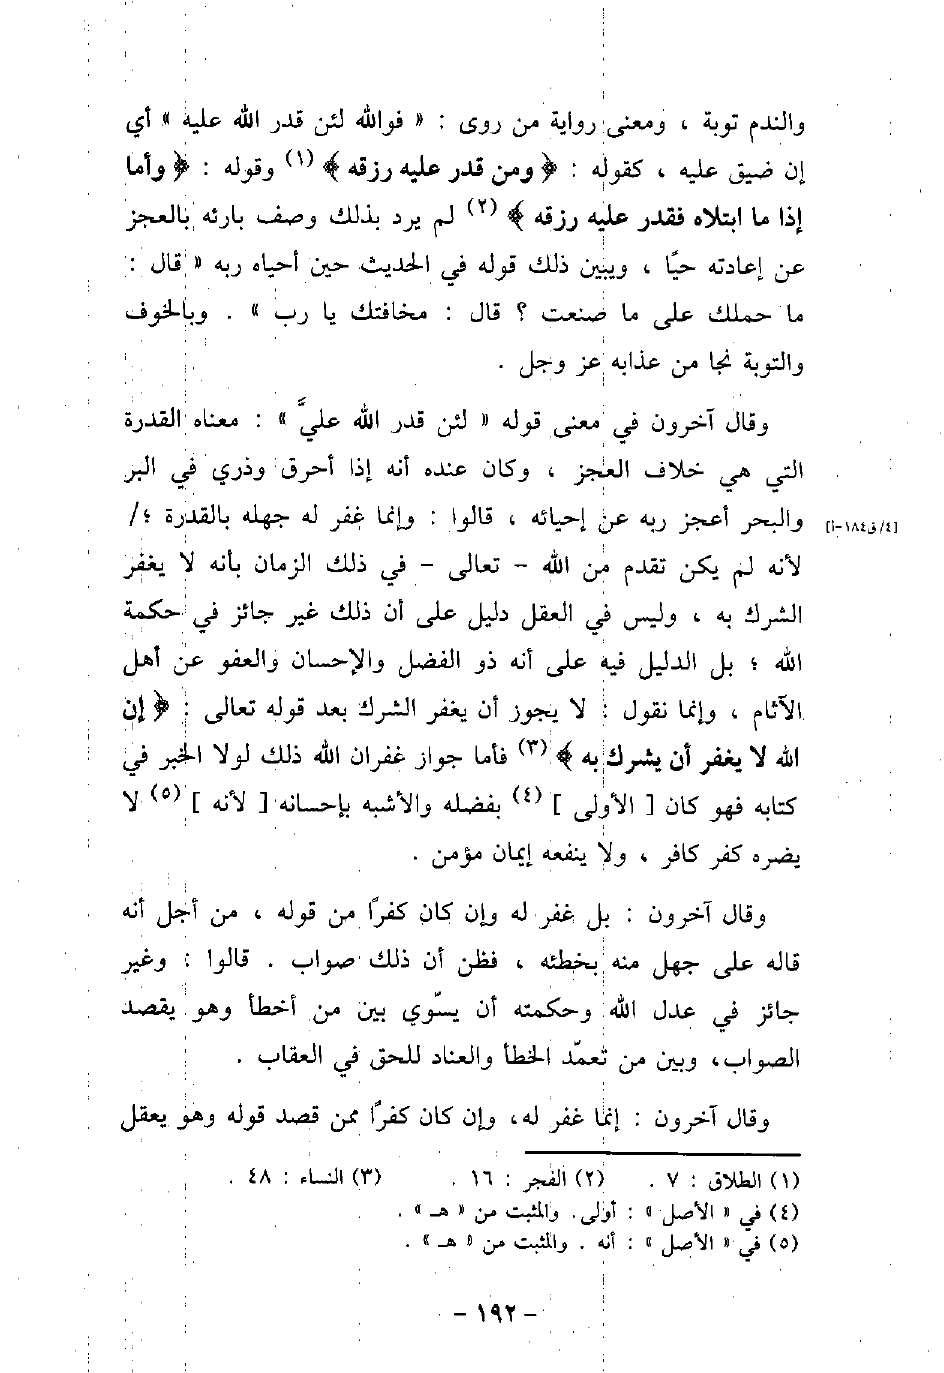 والندم توبة ، ومعنى رواية من روى : « فوالله لئن قدر الله عليه » أي
إن ضيق عليه ، كقوله : ﴿ ومن قدر عليه رزقه ﴾ (١) وقوله : ﴿ وأما
إذا ما ابتلاه فقدر عليه رزقه ﴾ (٢) لم يرد بذلك وصف بارئه بالعجز
عن إعادته حيًّا ، ويبين ذلك قوله في الحديث حين أحياه ربه « قال :
ما حملك على ما صنعت ؟ قال : مخافتك يا رب » . وبالخوف
والتوبة نجا من عذابه عز وجل .
وقال آخرون في معنى قوله « لئن قدر الله عليَّ » : معناه القدرة
التي هي خلاف العجز ، وكان عنده أنه إذا أحرق وذري في البر
والبحر أعجز ربه عن إحيائه ، قالوا : وإنما غفر له جهله بالقدرة ؛/ [٤/ق١٨٤-أ]
لأنه لم يكن تقدم من الله - تعالى - في ذلك الزمان بأنه لا يغفر
الشرك به ، وليس في العقل دليل على أن ذلك غير جائز في حكمة
الله ؛ بل الدليل فيه على أنه ذو الفضل والإحسان والعفو عن أهل
الآثام ، وإنما نقول : لا يجوز أن يغفر الشرك بعد قوله تعالى : ﴿ إن
الله لا يغفر أن يشرك به ﴾ (٣) فأما جواز غفران الله ذلك لولا الخبر في
كتابه فهو كان [ الأولى ] (٤) بفضله والأشبه بإحسانه [ لأنه ] (٥) لا
يضره كفر كافر ، ولا ينفعه إيمان مؤمن .
وقال آخرون : بل غفر له وإن كان كفرًا من قوله ، من أجل أنه
قاله على جهل منه بخطئه ، فظن أن ذلك صواب . قالوا : وغير
جائز في عدل الله وحكمته أن يسّوي بين من أخطأ وهو يقصد
الصواب، وبين من تعمّد الخطأ والعناد للحق في العقاب .
وقال آخرون : إنما غفر له، وإن كان كفرًا ممن قصد قوله وهو يعقل
(١) الطلاق : ٧ . (٢) الفجر : ١٦ . (٣) النساء : ٤٨ .
(٤) في « الأصل » : أولى. والمثبت من « هـ » .
(٥) في « الأصل » : أنه . والمثبت من « هـ » .
- ١٩٢ -